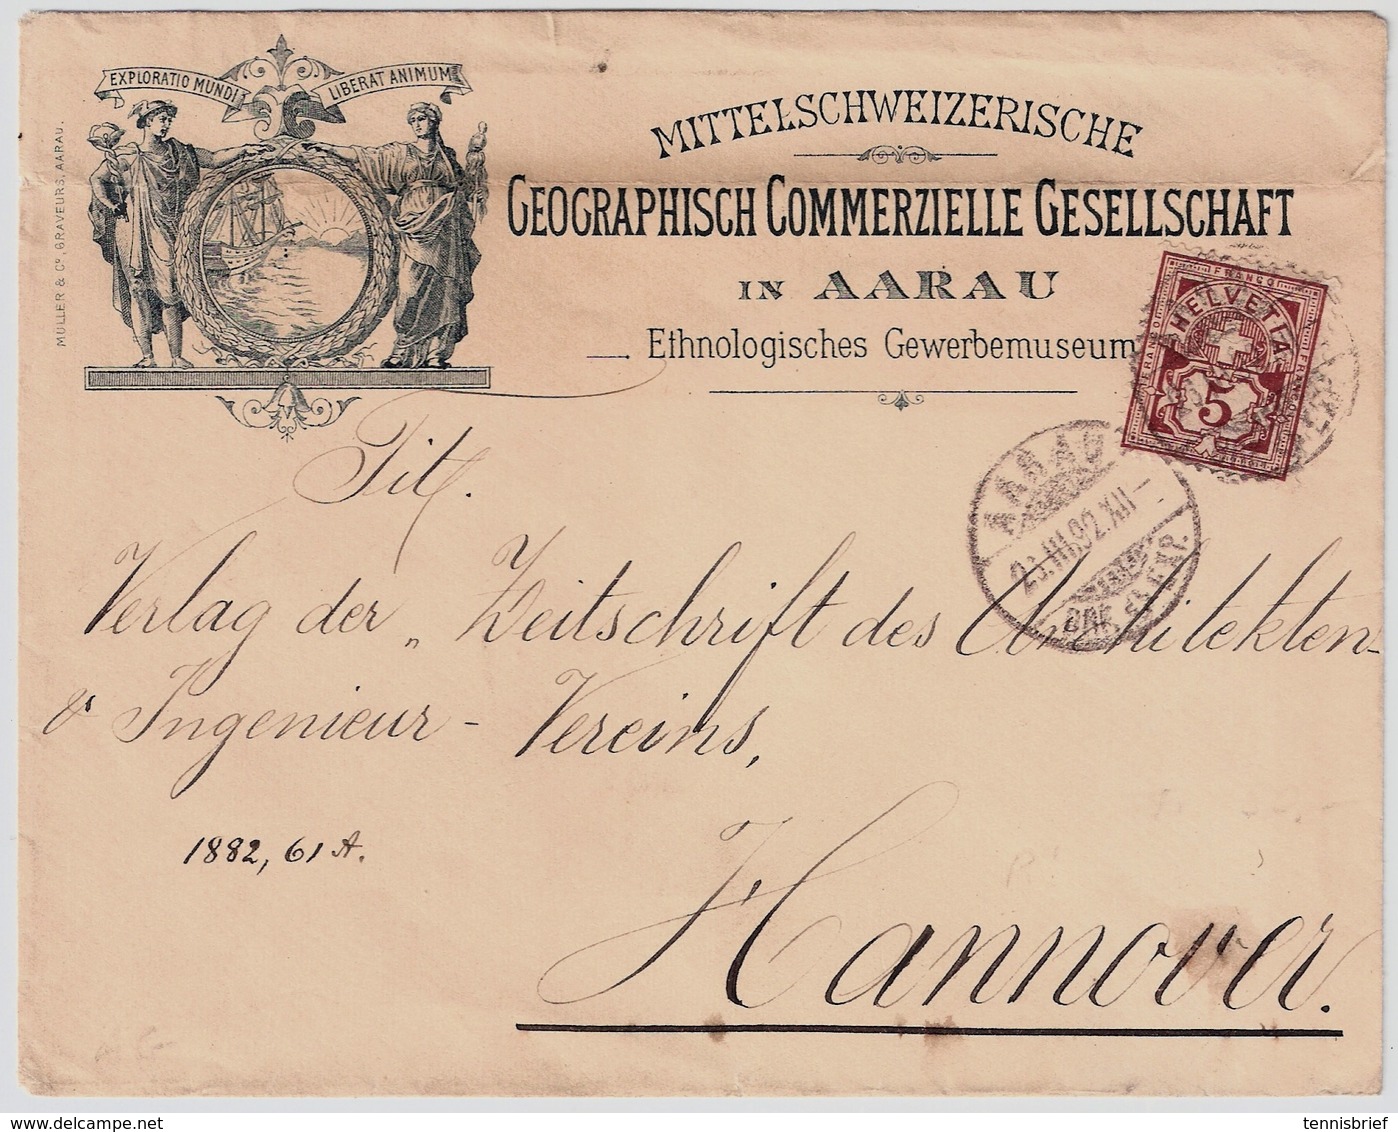 EXPLORATIO MUNDI LIBERAT ANIMUM
MÜLLER & Cº, GRAVEURS, AARAU.
MITTELSCHWEIZERISCHE
GEOGRAPHISCH COMMERZIELLE GESELLSCHAFT
IN AARAU
Ethnologisches Gewerbemuseum
FRANCO
HELVETIA
5
AARAU
23.III.92.XII–
Tit.
Verlag der „Zeitschrift des Architekten-
& Ingenieur- Vereins,
1882, 61 A.
Hannover.
tennisbrief